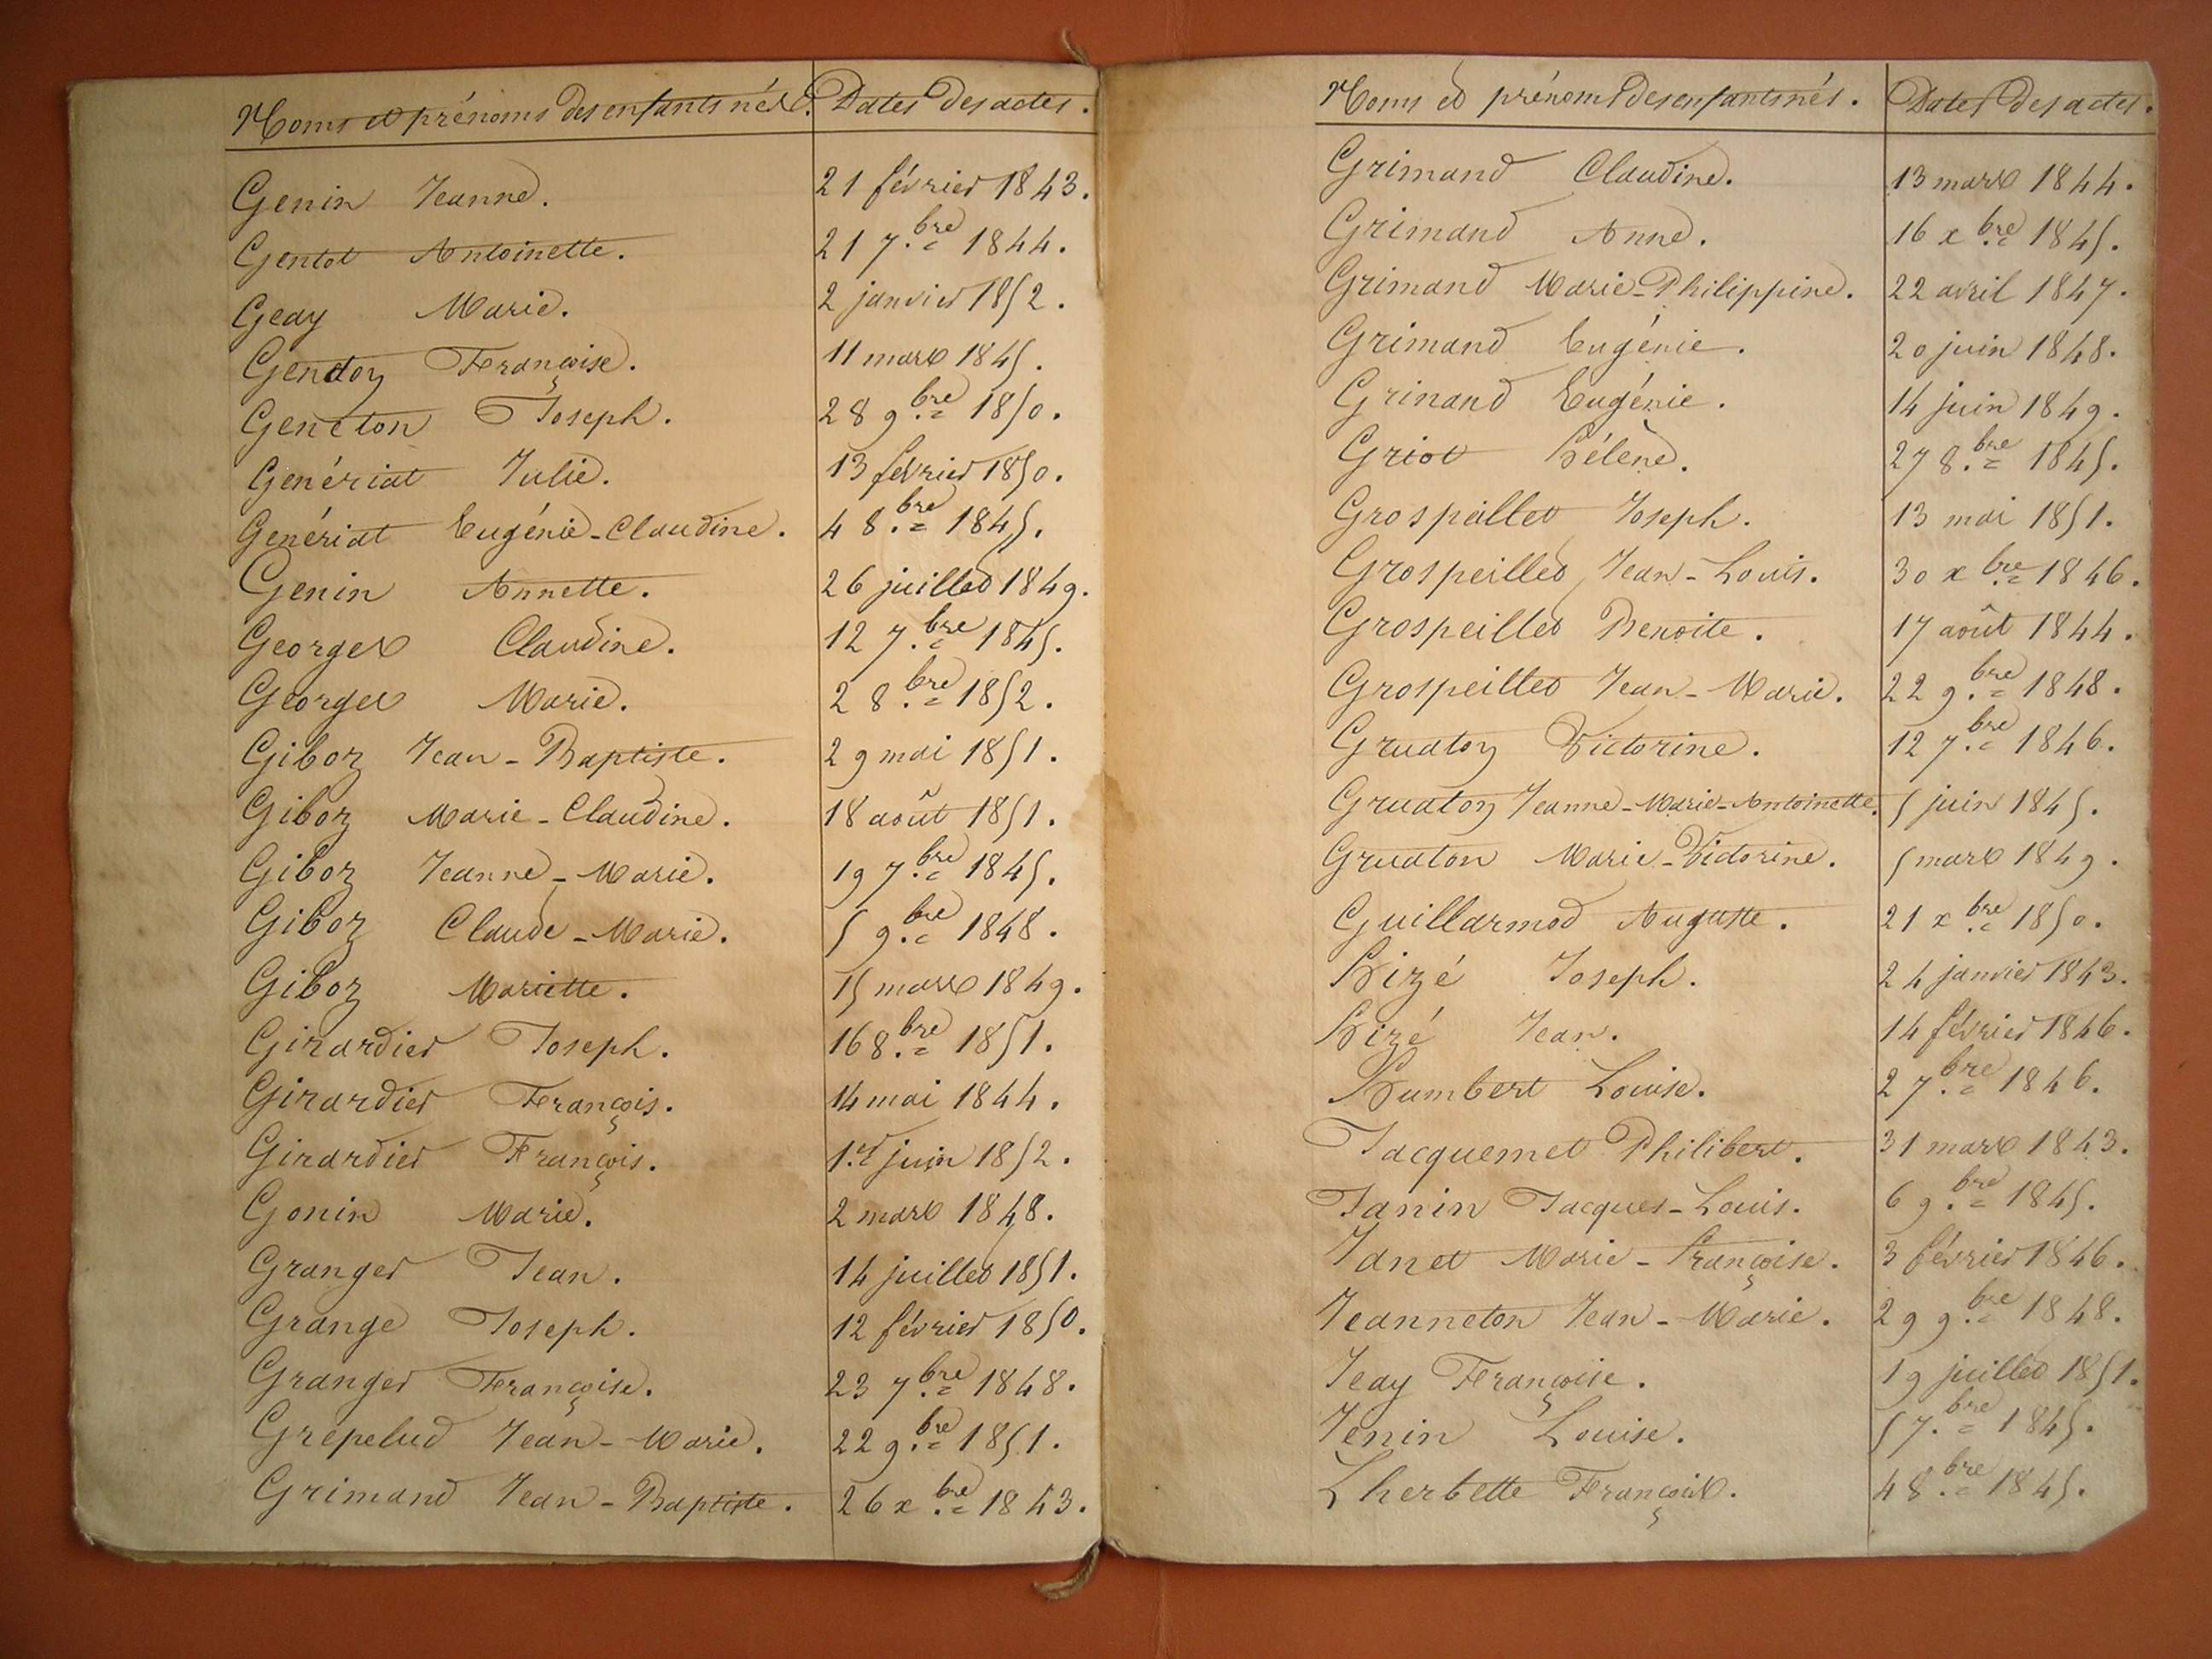 Noms et prénoms des enfants nés. Dates des actes.
Genin Jeanne. 21 février 1843.
Gentet Antoinette. 21 7.bre 1844.
Geay Marie. 2 janvier 1852.
Gendon Françoise. 11 mars 1845.
Geneton Joseph. 28 9.bre 1850.
Genériat Julie. 13 février 1850.
Genériat Eugénie-Claudine. 4 8.bre 1845.
Genin Annette. 26 juillet 1849.
Georges Claudine. 12 7.bre 1845.
Georges Marie. 2 8.bre 1852.
Giboz Jean-Baptiste. 29 mai 1851.
Giboz Marie-Claudine. 18 août 1851.
Giboz Jeanne-Marie. 19 7.bre 1845.
Giboz Claude-Marie. 5 9.bre 1848.
Giboz Mariette. 15 mars 1849.
Girardier Joseph. 16 8.bre 1851.
Girardier François. 14 mai 1844.
Girardier François. 1.er juin 1852.
Gonin Marie. 2 mars 1848.
Granger Jean. 14 juillet 1851.
Grange Joseph. 12 février 1850.
Granger Françoise. 23 7.bre 1848.
Grepelud Jean-Marie. 22 9.bre 1851.
Grimand Jean-Baptiste. 26 x.bre 1843.
Noms et prénoms des enfants nés. Dates des actes.
Grimand Claudine. 13 mars 1844.
Grimand Anne. 16 x bre 1845.
Grimand Marie-Philippine. 22 avril 1847.
Grimand Eugénie. 20 juin 1848.
Grinand Eugénie. 14 juin 1849.
Griot Hélène. 27 8.bre 1845.
Grospeillet Joseph. 13 mai 1851.
Grospeillet Jean-Louis. 30 x bre 1846.
Grospeillet Benoite. 17 août 1844.
Grospeillet Jean-Marie. 22 9.bre 1848.
Gruaton Victorine. 12 7.bre 1846.
Gruaton Jeanne-Marie-Antoinette. 5 juin 1845.
Gruaton Marie-Victorine. 5 mars 1849.
Guillarmod Auguste. 21 x.bre 1850.
Hizé Joseph. 24 janvier 1843.
Hizé Jean. 14 février 1846.
Humbert Louise. 2 7.bre 1846.
Jacquemet Philibert. 31 mars 1843.
Janin Jacques-Louis. 6 9.bre 1845.
Janet Marie-Françoise. 3 février 1846.
Jeanneton Jean-Marie. 29 9.bre 1848.
Jeay Françoise. 19 juillet 1851.
Jenin Louise. 5 7.bre 1845.
Lherbette François. 4 8.bre 1845.